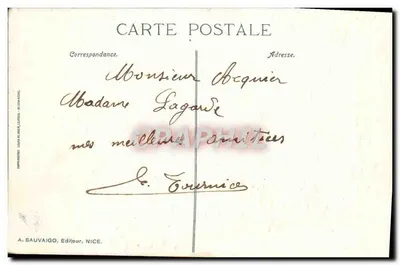 CARTE POSTALE
Correspondance. Adresse.
Monsieur Acquier
Madame Lagarde
mes meilleurs amitiés
A. SAUVAIGO, Editeur, NICE.